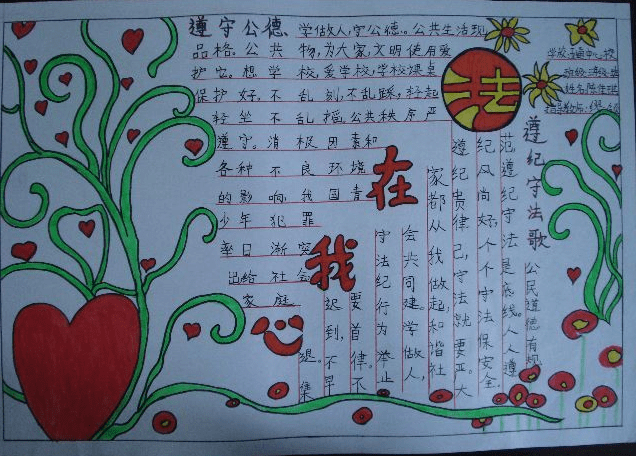 遵守公德、学做人,守公德。公共生活现
品格。公共物,为大家,文明使用爱
护它。想学校,爱学校,学校课桌
保护好。不乱刻,不乱踩,轻起
轻坐不乱摇。公共秩序严
遵守。消极因素和
各种不良环境
的影响,我国青
少年犯罪
率日渐突
出给社会
家庭
法
在
我
心
学校:
班级:
姓名:
遵纪守法歌
公民道德有规
范遵纪守法是底线。人人遵
纪风尚好,个个守法保安全
遵纪贵律己,守法就要正。大
家都从我做起,和谐社
会共同建。学做人,
守法纪行为举止
要首律。不
迟到,不早
退。集